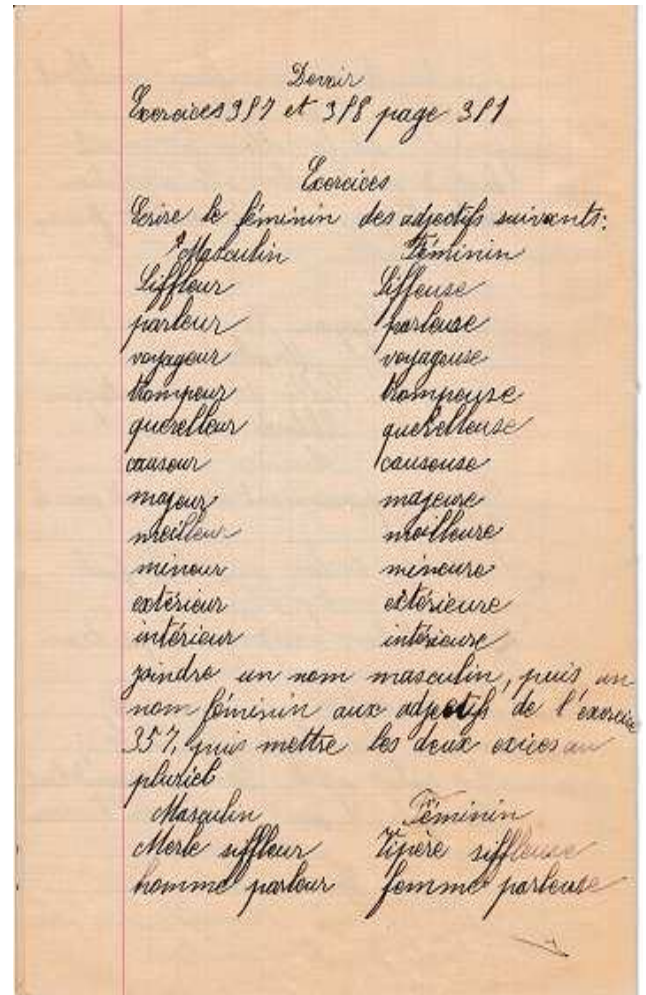 Devoir
Exercices 357 et 358 page 351
Exercices
Ecrire le féminin des adjectifs suivants:
Masculin Féminin
Siffleur Siffleuse
parleur parleuse
voyageur voyageuse
trompeur trompeuse
querelleur querelleuse
causeur causeuse
majeur majeure
meilleur meilleure
mineur mineure
extérieur extérieure
intérieur intérieure
joindre un nom masculin, puis un
nom féminin aux adjectifs de l'exercice
357, puis mettre les deux au
pluriel
Masculin Féminin
Merle siffleur Vipère siffleuse
homme parleur femme parleuse